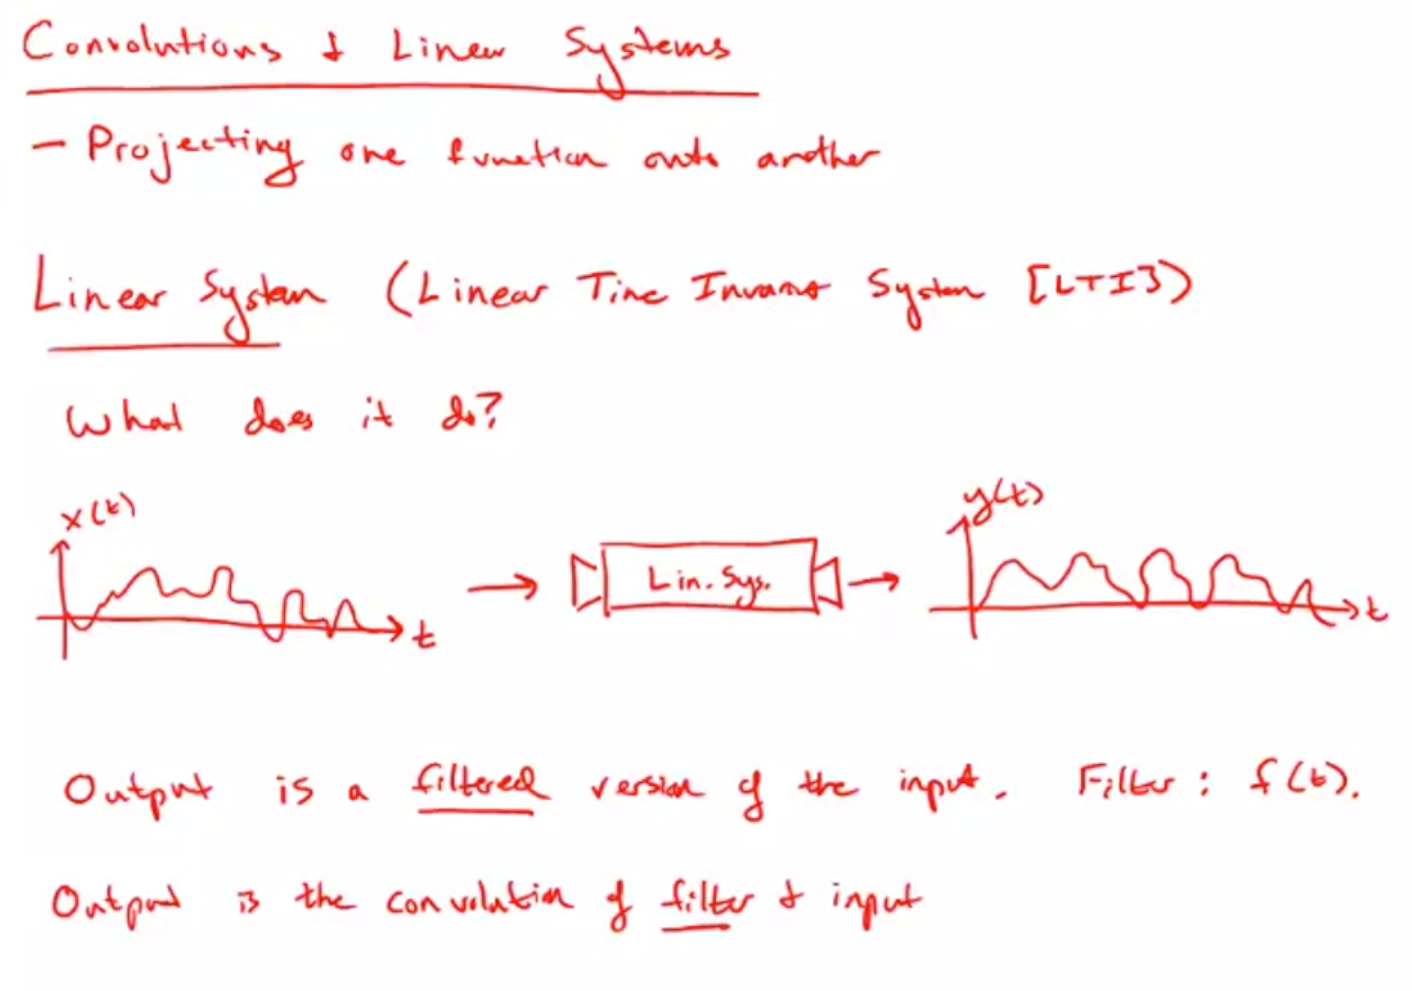 Convolutions & Linear Systems
- Projecting one function onto another
Linear System (Linear Time Invariant System [LTI])
What does it do?
x(t)
t
Lin. Sys.
y(t)
t
Output is a filtered version of the input. Filter: f(t).
Output is the convolution of filter & input